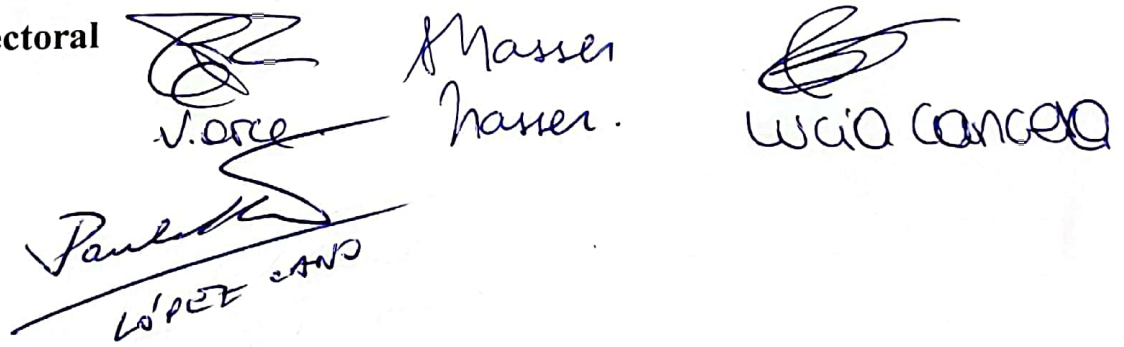 ectoral
V. Orce
Nasser
Nasser.
Lucía Cancela
LÓPEZ CANO